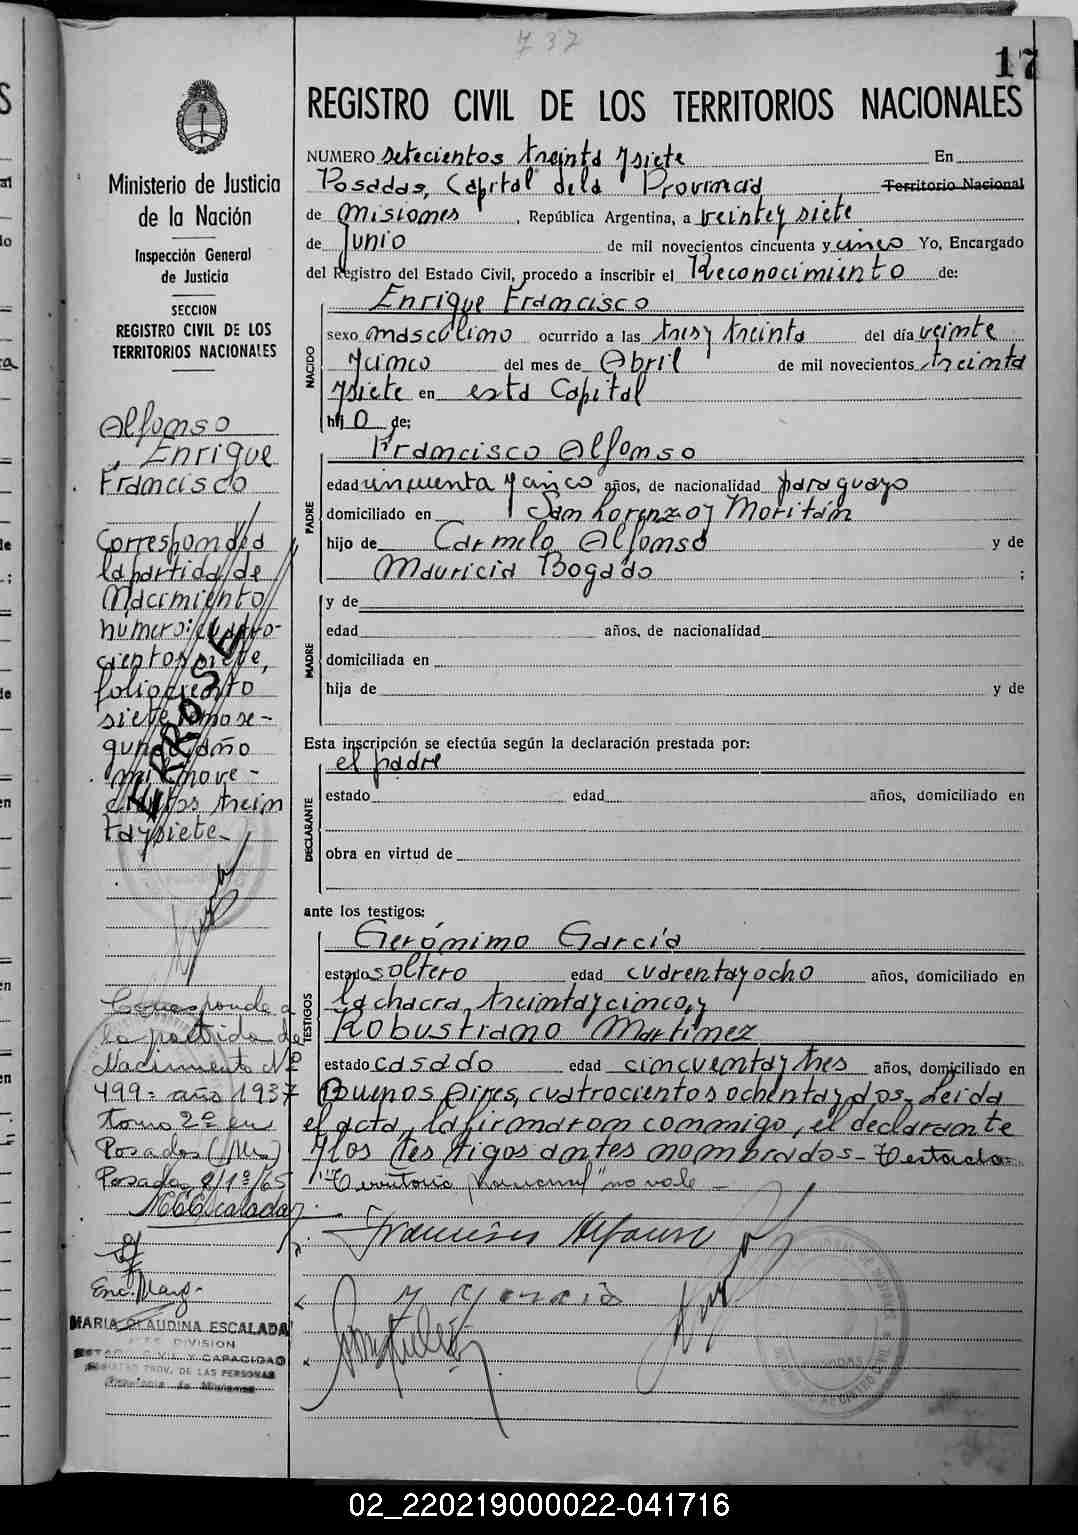 737
17
Ministerio de Justicia
de la Nación
Inspección General
de Justicia
SECCION
REGISTRO CIVIL DE LOS
TERRITORIOS NACIONALES
Alfonso
, Enrique
Francisco
Corresponde a
la partida de
Nacimiento
número: cuatro-
cientos siete,
folio ciento
siete tomo se-
gundo año
mil nove-
cientos trein
taysiete-
ERROSE
Corresponde a
la partida de
Nacimiento Nº
499- año 1937
tomo 2º en
Posadas (Mnes)
Posadas, 2/1º/65
MCEscalada
Enc. Marg-
MARIA CLAUDINA ESCALADA
JEFE DIVISION
ESTADO CIVIL Y CAPACIDAD
REGISTRO PROV. DE LAS PERSONAS
Provincia de Misiones
REGISTRO CIVIL DE LOS TERRITORIOS NACIONALES
NUMERO setecientos treinta ysiete En
Posadas, Capital dela Provincia Territorio Nacional
de Misiones, República Argentina, a veintey siete
de Junio de mil novecientos cincuenta y cinco Yo, Encargado
del Registro del Estado Civil, procedo a inscribir el Reconocimiento de:
NACIDO
Enrique Francisco
sexo masculino ocurrido a las tres y treinta del día veinte
ycinco del mes de Abril de mil novecientos treinta
ysiete en esta Capital
hijo de;
PADRE
Francisco Alfonso
edad cincuenta y cinco años, de nacionalidad paraguayo
domiciliado en San Lorenzo y Moritán
hijo de Carmelo Alfonso y de
Mauricia Bogado ;
MADRE
y de
edad años, de nacionalidad
domiciliada en
hija de y de
Esta inscripción se efectúa según la declaración prestada por:
DECLARANTE
el padre
estado edad años, domiciliado en
obra en virtud de
ante los testigos:
TESTIGOS
Gerónimo García
estado soltero edad cuarentayocho años, domiciliado en
la chacra treintaycinco, y
Robustiano Martinez
estado casado edad cincuentaytres años, domiciliado en
Buenos Aires, cuatrocientos ochentaydos- Leida
el acta, la firmaron conmigo, el declarante
ylos testigos antes nombrados- Testado:
"Territorio Nacional" no vale-
Francisco Alfonso
02_220219000022-041716